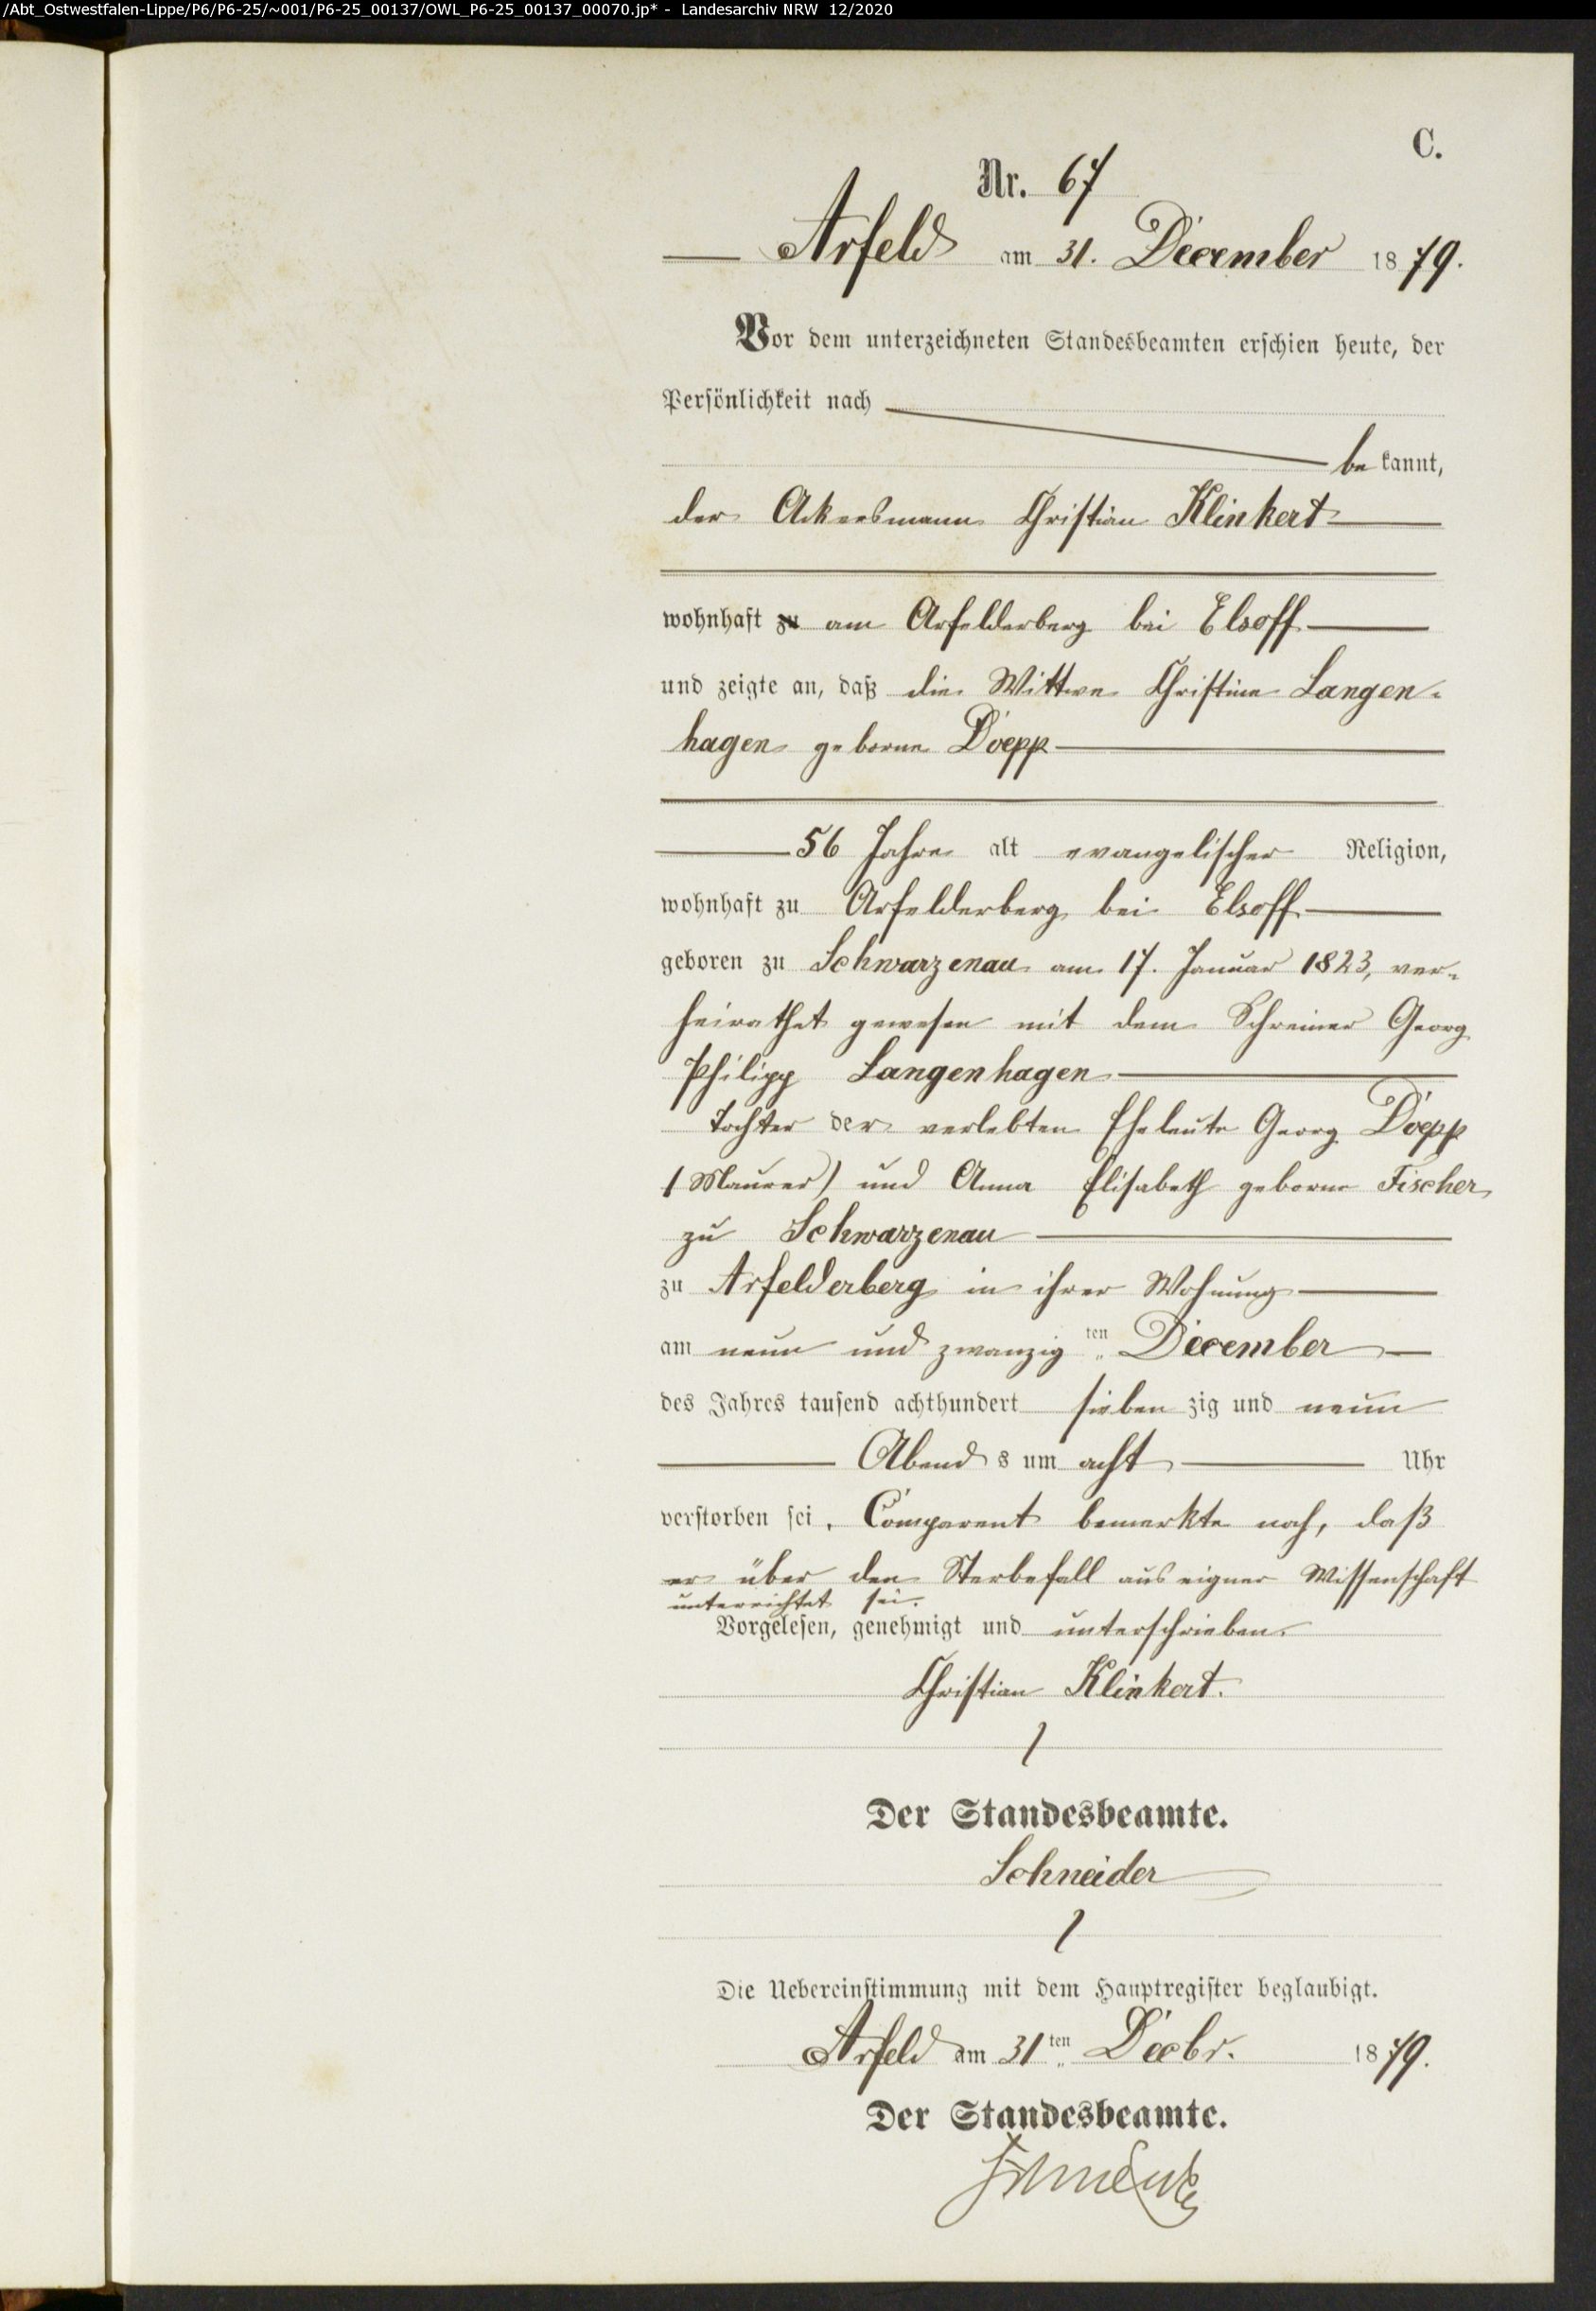 /Abt_Ostwestfalen-Lippe/P6/P6-25/~001/P6-25_00137/OWL_P6-25_00137_00070.jp* - Landesarchiv NRW 12/2020
C.
Nr. 67
Arfeld am 31. December 1879.
Vor dem unterzeichneten Standesbeamten erschien heute, der
Persönlichkeit nach
be kannt,
der Ackersmann Christian Klinkert
wohnhaft zu am Arfelderberg bei Elsoff
und zeigte an, daß die Wittwe Christine Langen-
hagen geborne Döpp
56 Jahre alt evangelischer Religion,
wohnhaft zu Arfelderberg bei Elsoff
geboren zu Schwarzenau am 17. Januar 1823, ver-
heirathet gewesen mit dem Schreiner Georg
Philipp Langenhagen
Tochter der verlebten Eheleute Georg Döpp
(Maurer) und Anna Elisabeth geborne Fischer
zu Schwarzenau
zu Arfelderberg in ihrer Wohnung
am neun und zwanzig ten December
des Jahres tausend achthundert sieben zig und neun
Abend s um acht Uhr
verstorben sei. Comparent bemerkte noch, daß
er über den Sterbefall aus eigner Wissenschaft
unterrichtet sei.
Vorgelesen, genehmigt und unterschrieben.
Christian Klinkert.
Der Standesbeamte.
Schneider
Die Uebereinstimmung mit dem Hauptregister beglaubigt.
Arfeld am 31ten Decbr. 1879.
Der Standesbeamte.
Schneider